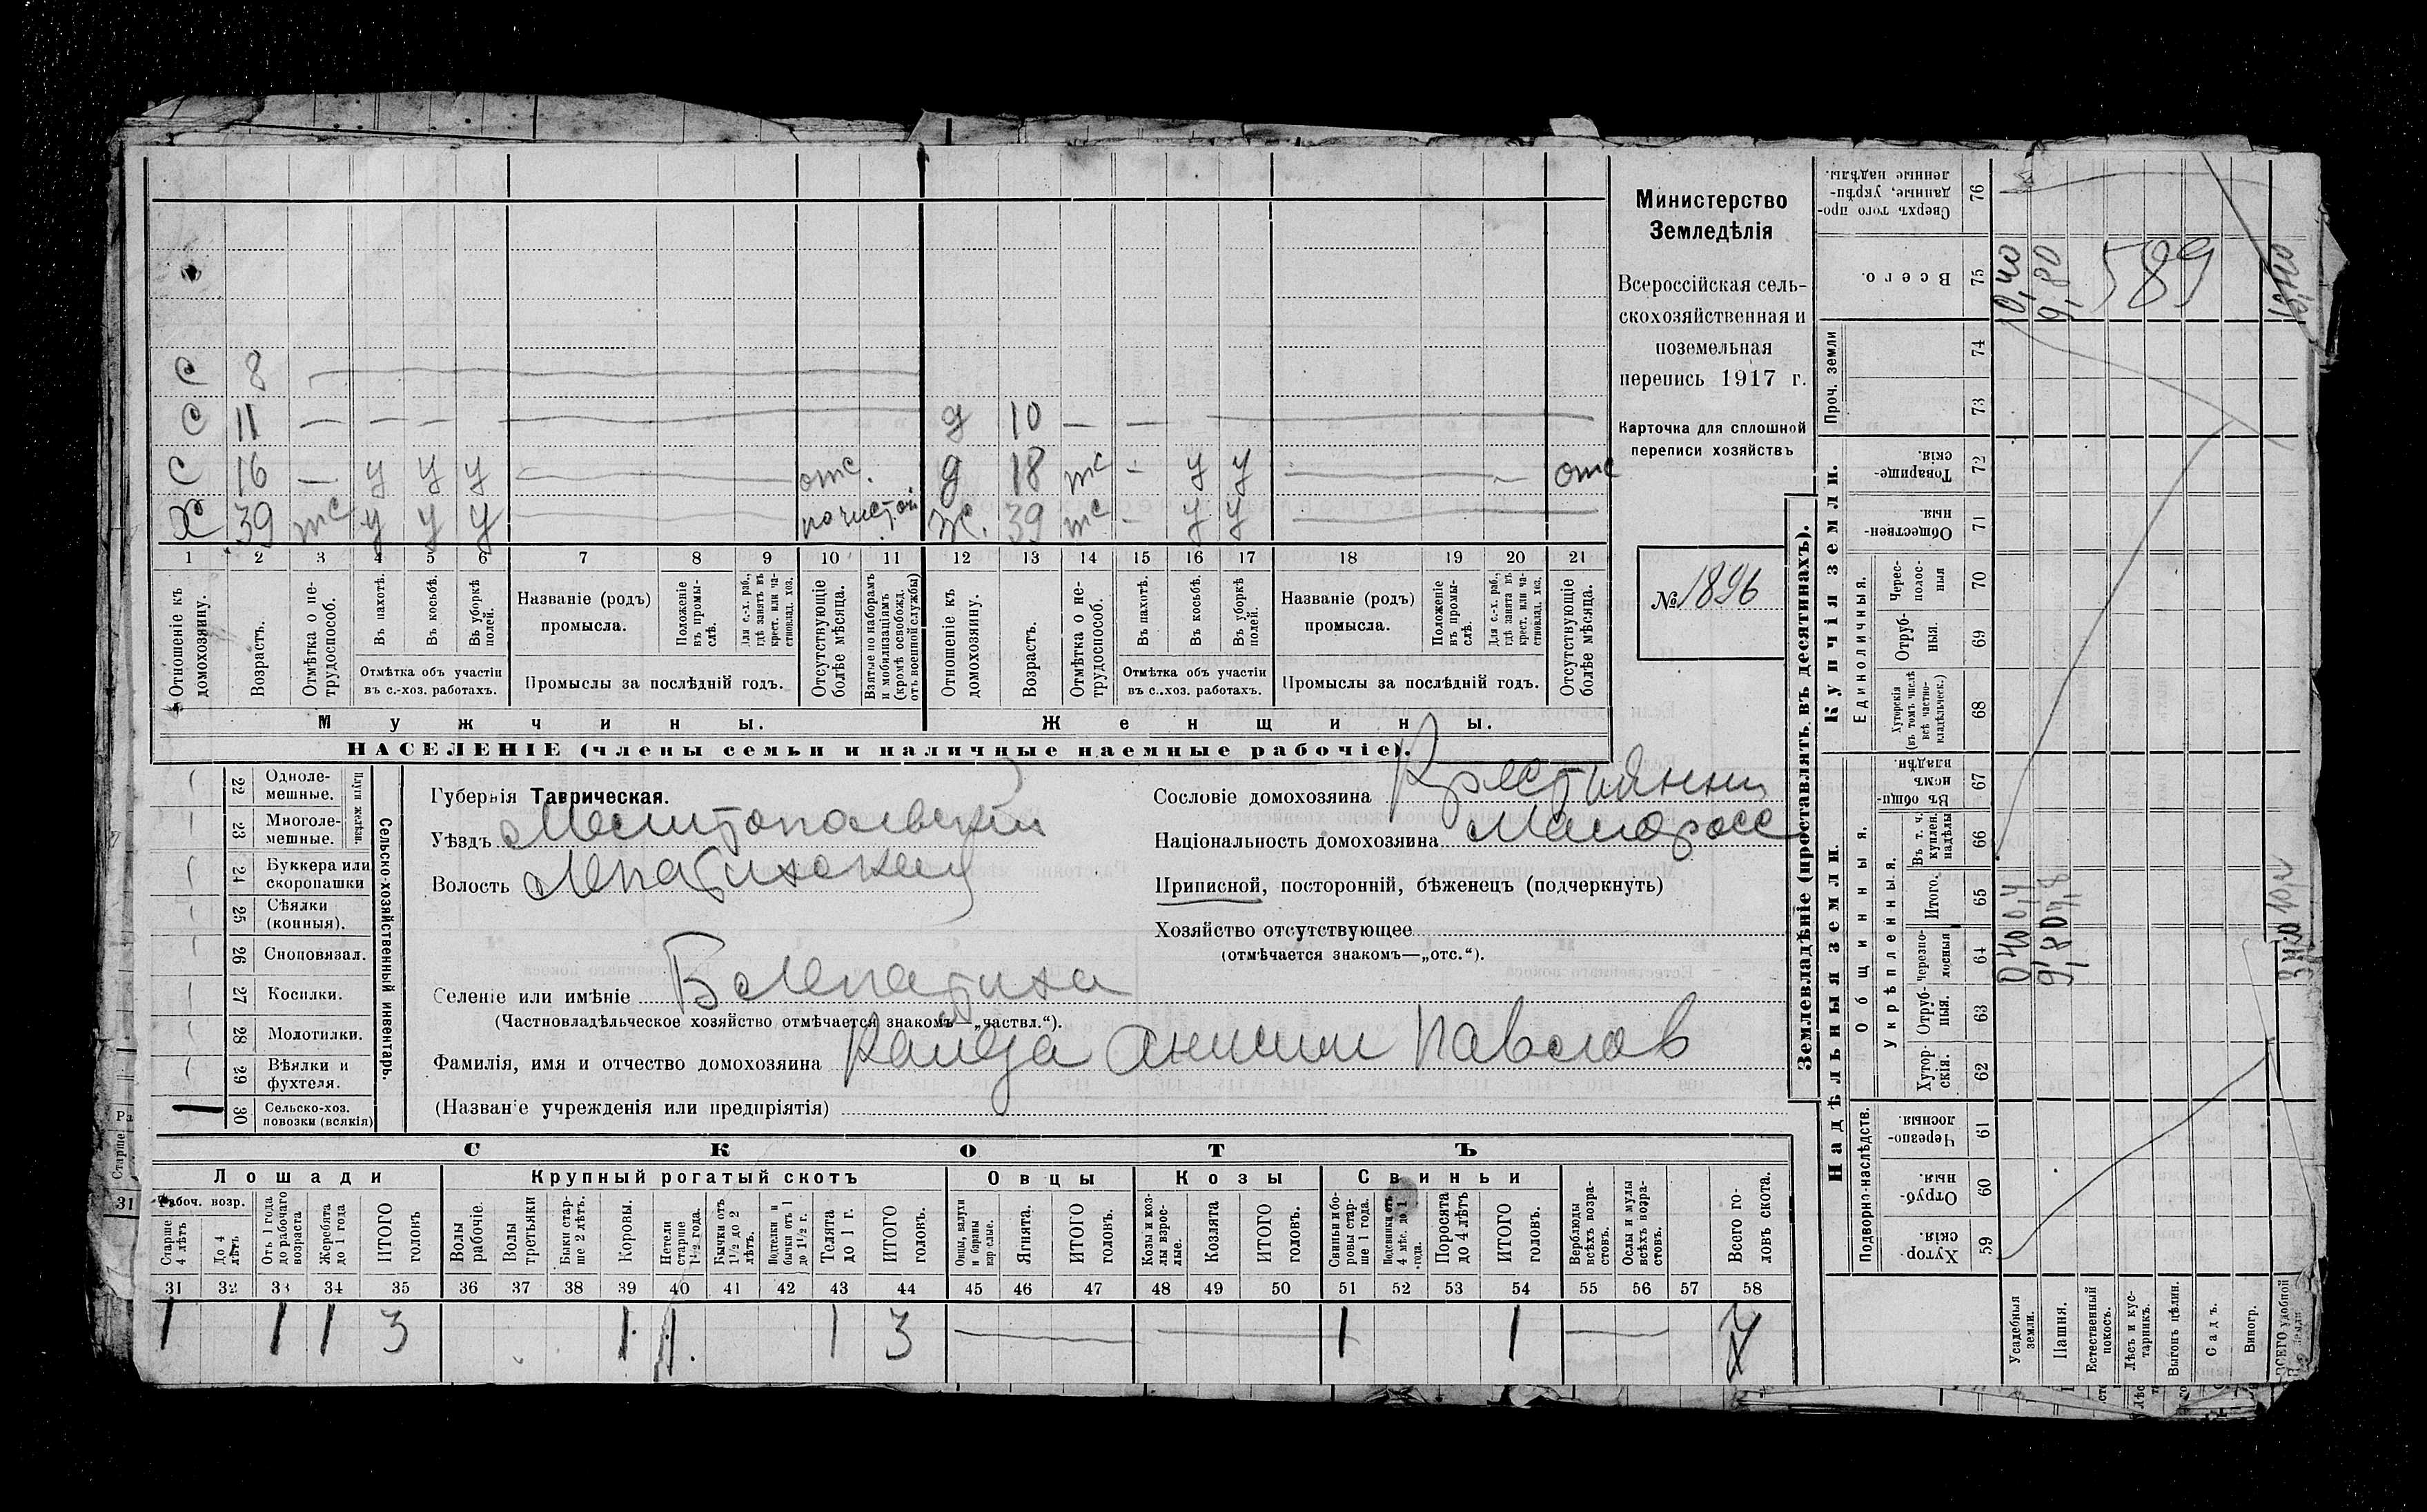 С 8
С 11 — — — — д 10 — —
С 16 — у у у отс. д 18 тс - у у отс
Х 39 тс у у у по чистой ж. 39 тс - у у
1 2 3 4 5 6 7 8 9 10 11 12 13 14 15 16 17 18 19 20 21
Отношеніе къ домохозяину.
Возрастъ.
Отмѣтка о не-трудоспособ.
Въ пахотѣ.
Въ косьбѣ.
Въ уборкѣ полей.
Отмѣтка объ участіи
въ с.-хоз. работахъ.
Названіе (родъ)
промысла.
Положеніе въ промы-слѣ.
Для с.-х. раб., гдѣ занятъ въ крест. или ча-стновлад. хоз.
Промыслы за послѣдній годъ.
Отсутствующіе болѣе мѣсяца.
Взятые по наборамъ и мобилизаціямъ (кромѣ освобожд. отъ военной службы)
Отношеніе къ домохозяину.
Возрастъ.
Отмѣтка о не-трудоспособ.
Въ пахотѣ.
Въ косьбѣ.
Въ уборкѣ полей.
Отмѣтка объ участіи
въ с.-хоз. работахъ.
Названіе (родъ)
промысла.
Положеніе въ промы-слѣ.
Для с.-х. раб., гдѣ занята въ крест. или ча-стновлад. хоз.
Промыслы за послѣдній годъ.
Отсутствующіе болѣе мѣсяца.
Мужчины. Женщины.
НАСЕЛЕНІЕ (члены семьи и наличные наемные рабочіе).
Министерство
Земледѣлія
Всероссійская сель-
скохозяйственная и
поземельная
перепись 1917 г.
Карточка для сплошной
переписи хозяйствъ
№ 1896
Сельско-хозяйственный инвентарь.
Плуги желѣзн.
22 Одноле-мешные.
23 Многоле-мешные.
24 Буккера или скоропашки
25 Сѣялки (конныя).
26 Сноповязал.
27 Косилки.
28 Молотилки.
29 Вѣялки и фухтеля.
30 Сельско-хоз. повозки (всякія) 1
Губернія Таврическая.
Уѣздъ Мелитопольскій
Волость Лепатихской
Селеніе или имѣніе Б Лепатиха
(Частновладѣльческое хозяйство отмѣчается знакомъ—„частвл.“).
Фамилія, имя и отчество домохозяина Анисим Павлов
(Названіе учрежденія или предпріятія)
Сословіе домохозяина Крестьянин
Національность домохозяина Малоросс
Приписной, посторонній, бѣженецъ (подчеркнуть)
Хозяйство отсутствующее
(отмѣчается знакомъ—„отс.“).
СКОТЪ
Лошади Крупный рогатый скотъ Овцы Козы Свиньи
Рабоч. возр.
Старше 4 лѣтъ
До 4 лѣтъ
Отъ 1 года до рабочаго возраста
Жеребята до 1 года
ИТОГО головъ
Волы рабочіе.
Волы третьяки
Быки стар-ше 2 лѣтъ.
Коровы.
Нетели старше 1½ года.
Бычки отъ 1½ до 2 лѣтъ.
Подтелки и бычки отъ 1 до 1½ г.
Телята до 1 г.
ИТОГО головъ.
Овцы, валухи и бараны взрослые.
Ягнята.
ИТОГО головъ.
Козы и коз-лы взрос-лые.
Козлята
ИТОГО головъ.
Свиньи и бо-ровы стар-ше 1 года.
Подсвинки отъ 4 мѣс. до 1 года.
Поросята до 4 лѣтъ
ИТОГО головъ.
Верблюды всѣхъ возра-стовъ.
Ослы и мулы всѣхъ возра-стовъ.
Всего го-ловъ скота.
31 32 33 34 35 36 37 38 39 40 41 42 43 44 45 46 47 48 49 50 51 52 53 54 55 56 57 58
1 1 1 3 1 1 1 3 1 1 7
Землевладѣніе (проставлять въ десятинахъ).
Надѣльныя земли.
Купчія земли.
Проч. земли
Подворно-наслѣдств.
Общинныя.
Укрѣпленныя.
Единоличныя.
76 Сверхъ того про-данные, укрѣп-ленные надѣлы.
75 Всего.
74
73
72 Товарище-скія.
71 Обществен-ныя.
70 Черес-полос-ныя
69 Отруб-ныя.
68 Хуторскія (въ томъ числѣ всѣ частно-владѣльческ.)
67 Въ общи-номъ владѣн.
66 Въ т. ч. куплен. надѣлы
65 Итого.
64 Черезпо-лосныя
63 Отруб-ныя.
62 Хутор-скія.
61 Черезпо-лосныя
60 Отруб-ныя.
59 Хутор-скія.
0,40
9,80
589
Усадебныя земли.
Пашня.
Естественный покосъ.
Лѣсъ и кус-тарникъ.
Выгонъ цѣлин.
Садъ.
Виногр.
ВСЕГО удобной земли